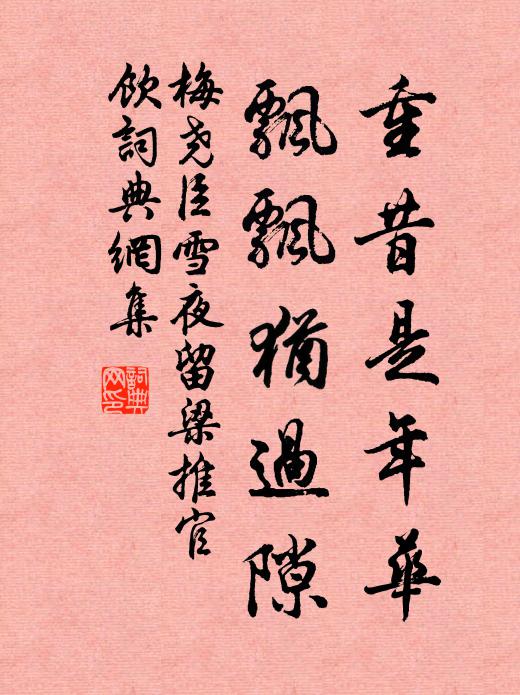 重昔是年華
飄飄猶過隙
梅堯臣雪夜留梁推官
飲詞典網集
詞典网印